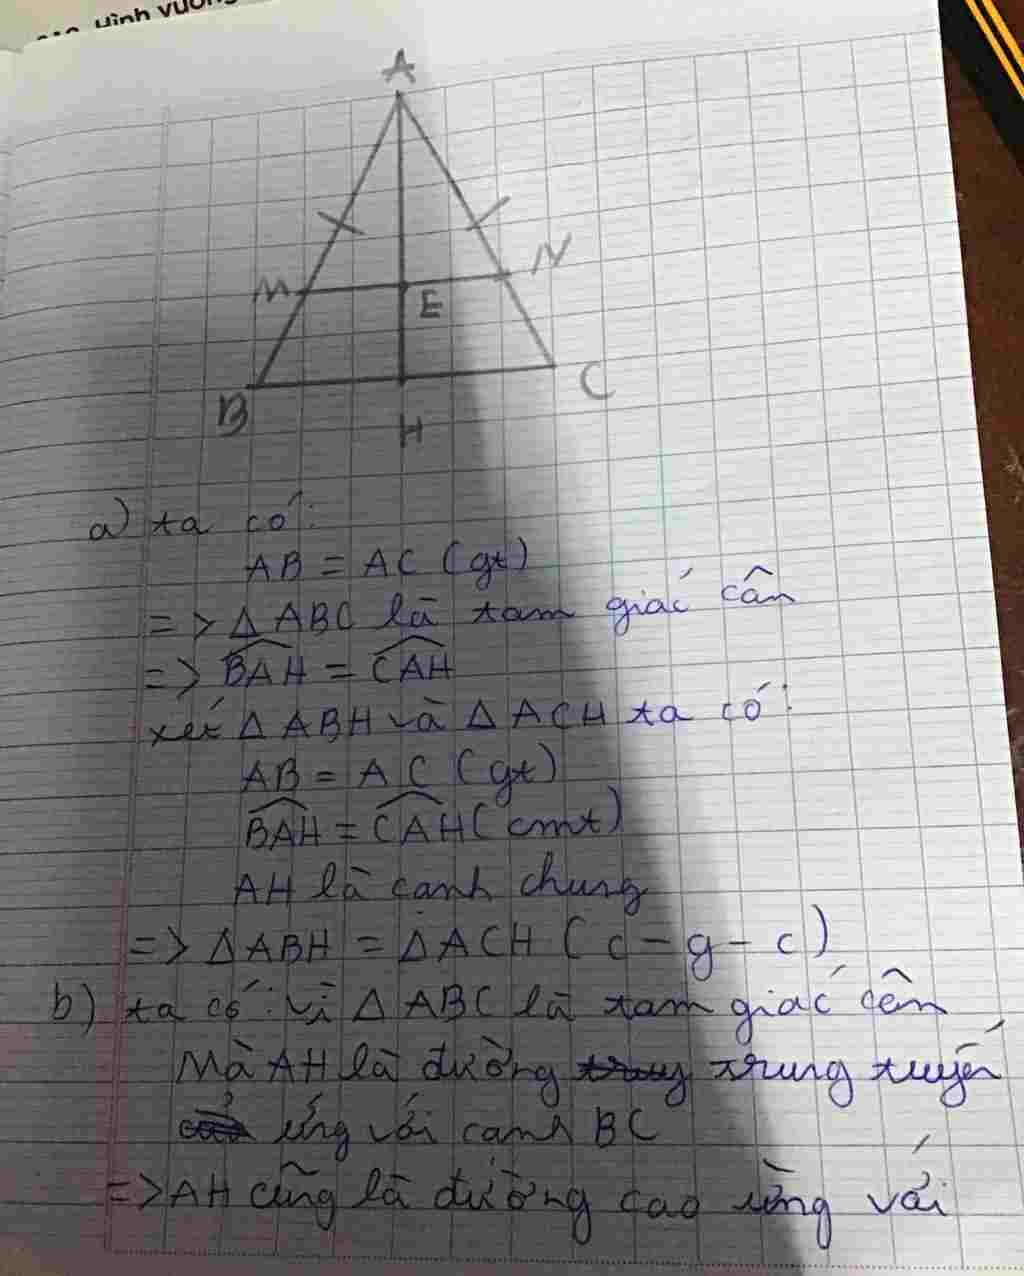 Hình vuông
A
M
N
E
B
C
H
a) ta có:
AB = AC (gt)
=> Δ ABC là tam giác cân
=> \widehat{BAH} = \widehat{CAH}
xét Δ ABH và Δ ACH ta có:
AB = AC (gt)
\widehat{BAH} = \widehat{CAH} (cmt)
AH là cạnh chung
=> Δ ABH = Δ ACH (c-g-c)
b) ta có: vì Δ ABC là tam giác cân
Mà AH là đường trung tuyến
ứng với cạnh BC
=> AH cũng là đường cao ứng với